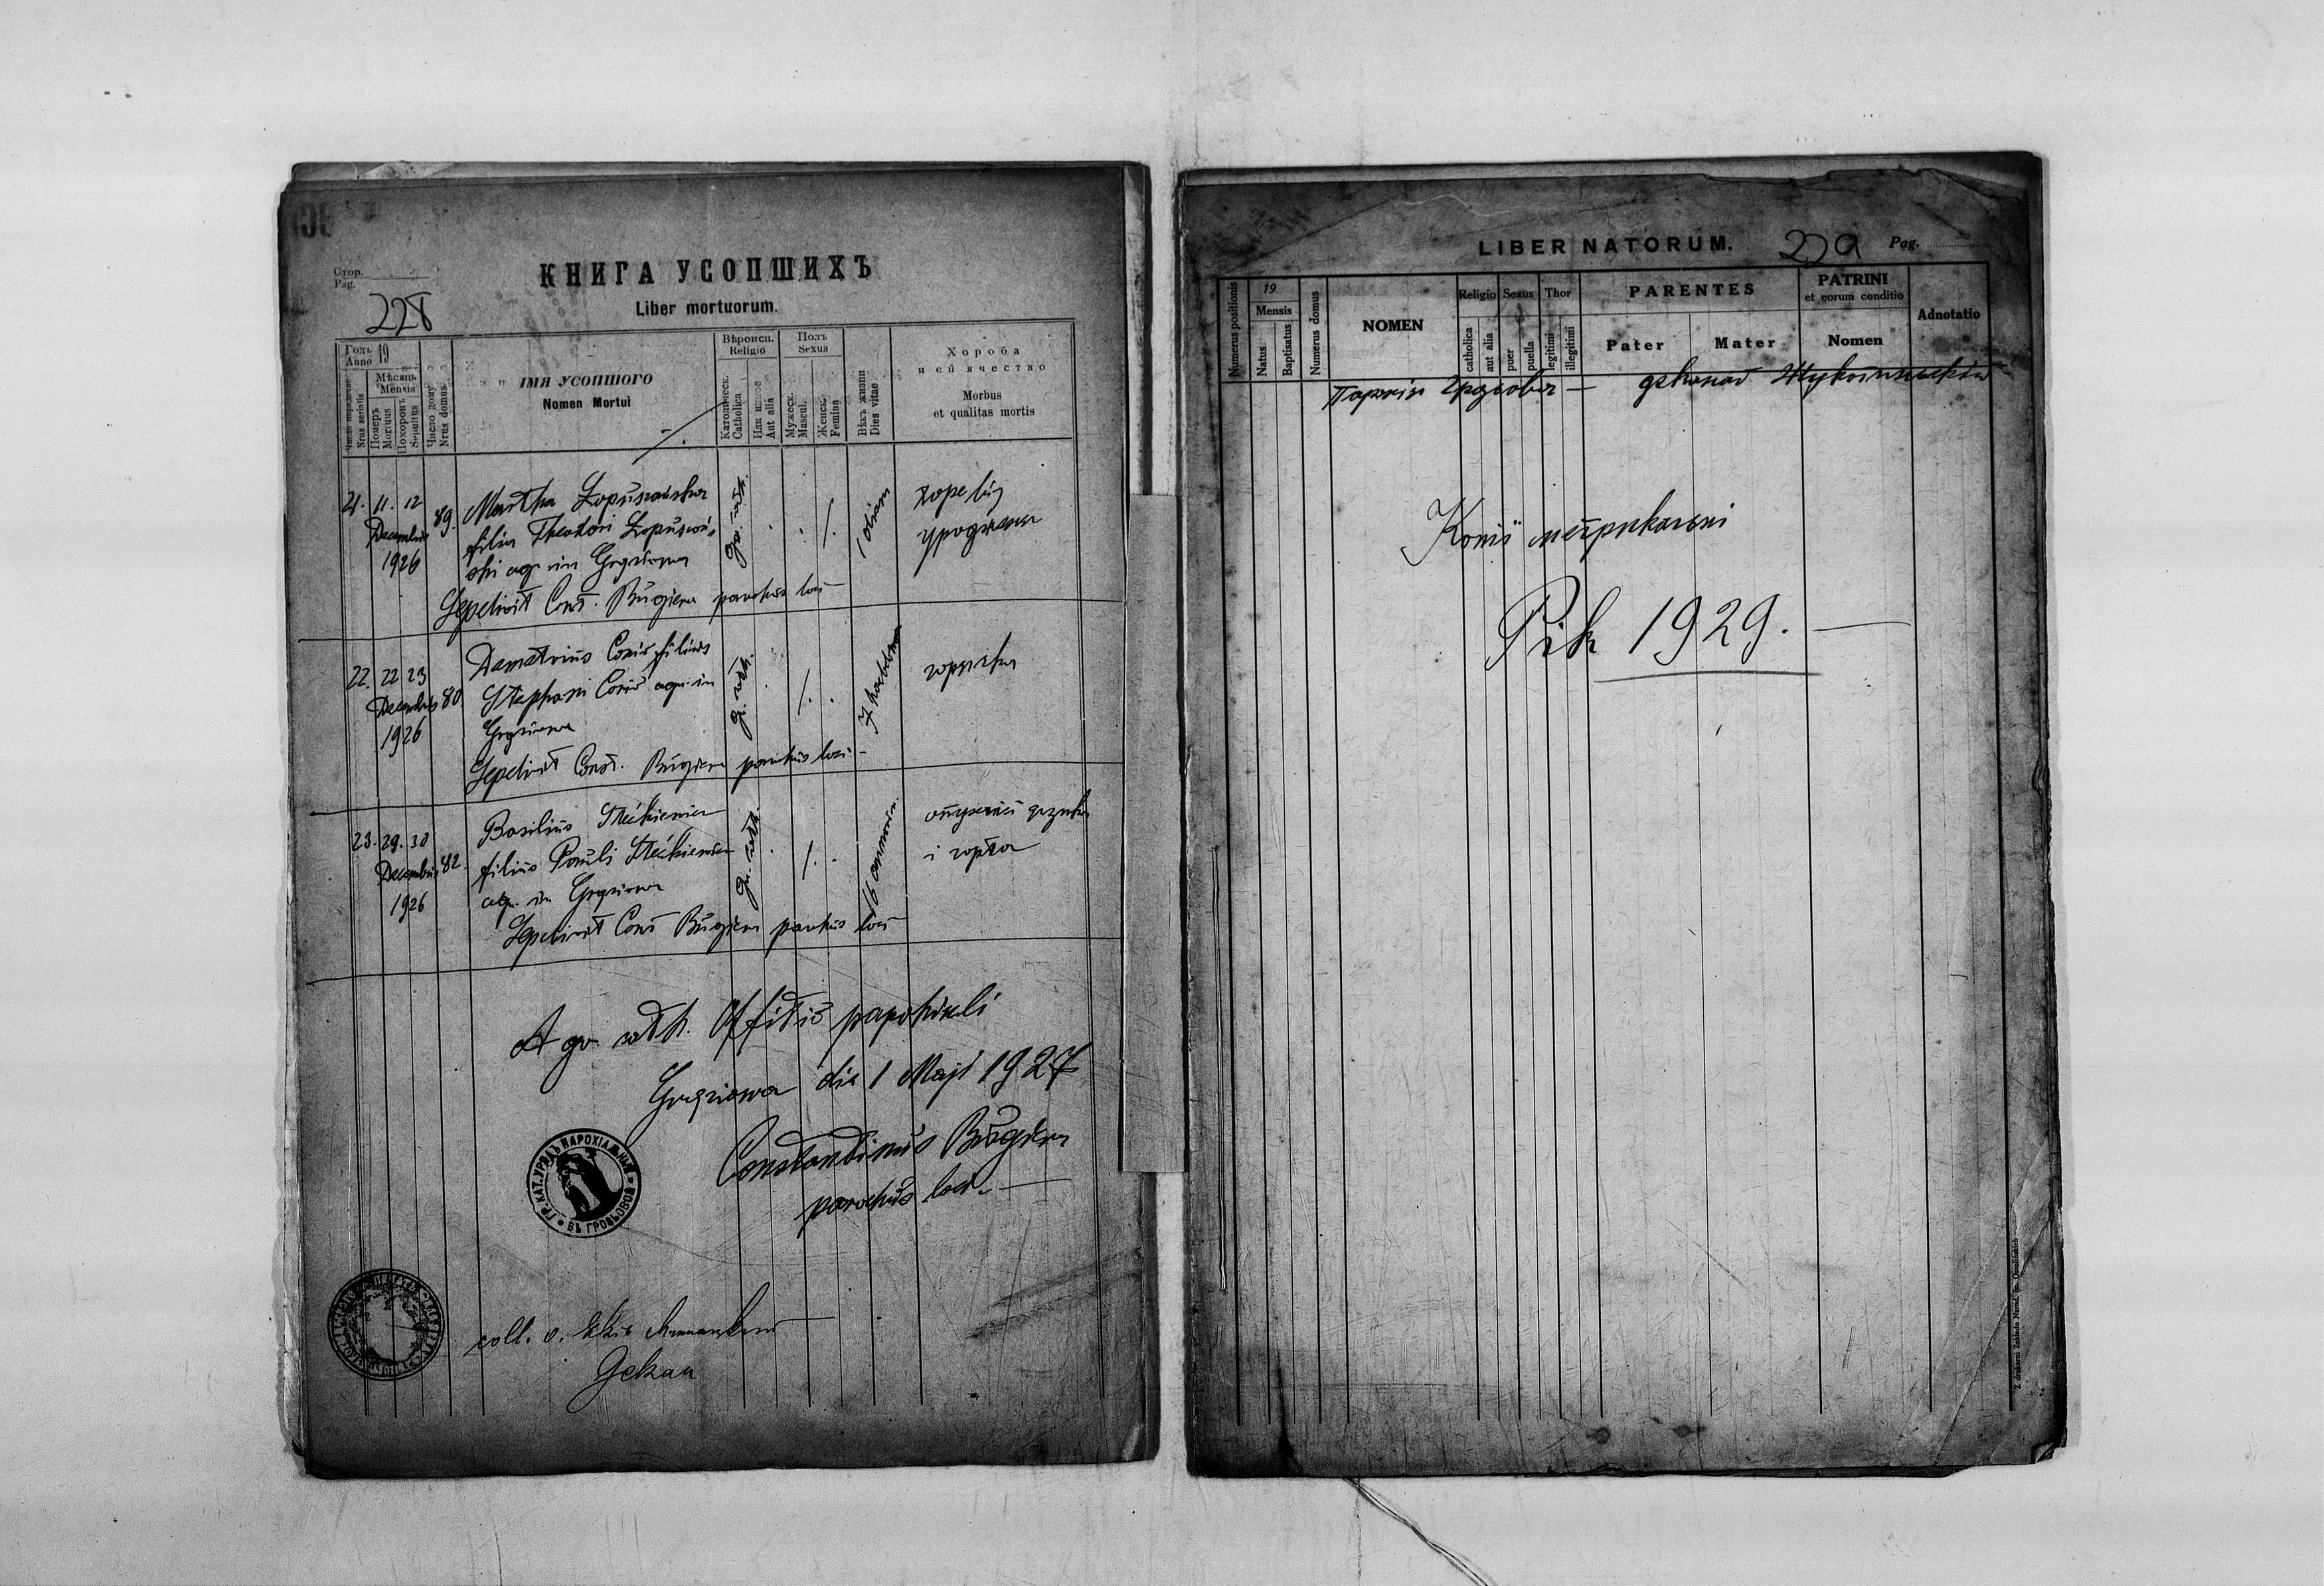 Стор.
Pag.
228
КНИГА УСОПШИХЪ
Liber mortuorum.
Годъ 19
Anno
Мѣсяць
Mensis
Nrus seriatis
Померъ
Mortuus
Похоронъ
Sepultus
Число дому
Nrus domus
ІМЯ УСОПШОГО
Nomen Mortui
Вѣроисп.
Religio
Католическ.
Catholica
Или иное
Aut alia
Полъ
Sexus
Мужеск.
Mascul.
Женск.
Femina
Вѣкъ жизни
Dies vitae
Хороба
и єй ячество
Morbus
et qualitas mortis
21. 11. 12 Decembris 1926 89.
Martha Łopuszańska
filia Theodori Łopuszań-
ski agr. in Grąziowa
gr. cath.
1 diem
хоре від
уродженя
Sepelivit Const. Bugiera parochus loci
22. 22 23 Decembris 1926 80.
Demetrius Conio filius
Stephani Conio agr. in
Grąziowa
gr. cath.
горячка
Sepelivit Const. Bugiera parochus loci
23. 29. 30 Decembris 1926 82.
Basilius
filius Pauli
agr. in Grąziowa
gr. cath.
16
Sepelivit Const Bugiera parochus loci
A gr. cath. Offitio parochiali
Grąziowa die 1 Maji 1927
Constantinus Bugiera
parochus loci.
ГР. КАТ. УРЯДЪ ПАРОХІАЛЬНЫЙ ВЪ ГРОЗЬОВОЙ
coll. c.
декан
LIBER NATORUM. 229 Pag.
Numerus positionis
19
Mensis
Natus
Baptisatus
Numerus domus
NOMEN
Religio
catholica
aut alia
Sexus
puer
puella
Thor
legitimi
illegitimi
PARENTES
Pater
Mater
PATRINI
et eorum conditio
Nomen
Adnotatio
Парохія Грозьова — деканат Жукотинський
Копії метрикальні
Рік 1929.
Z drukarni Zakładu Narod. im. Ossolińskich